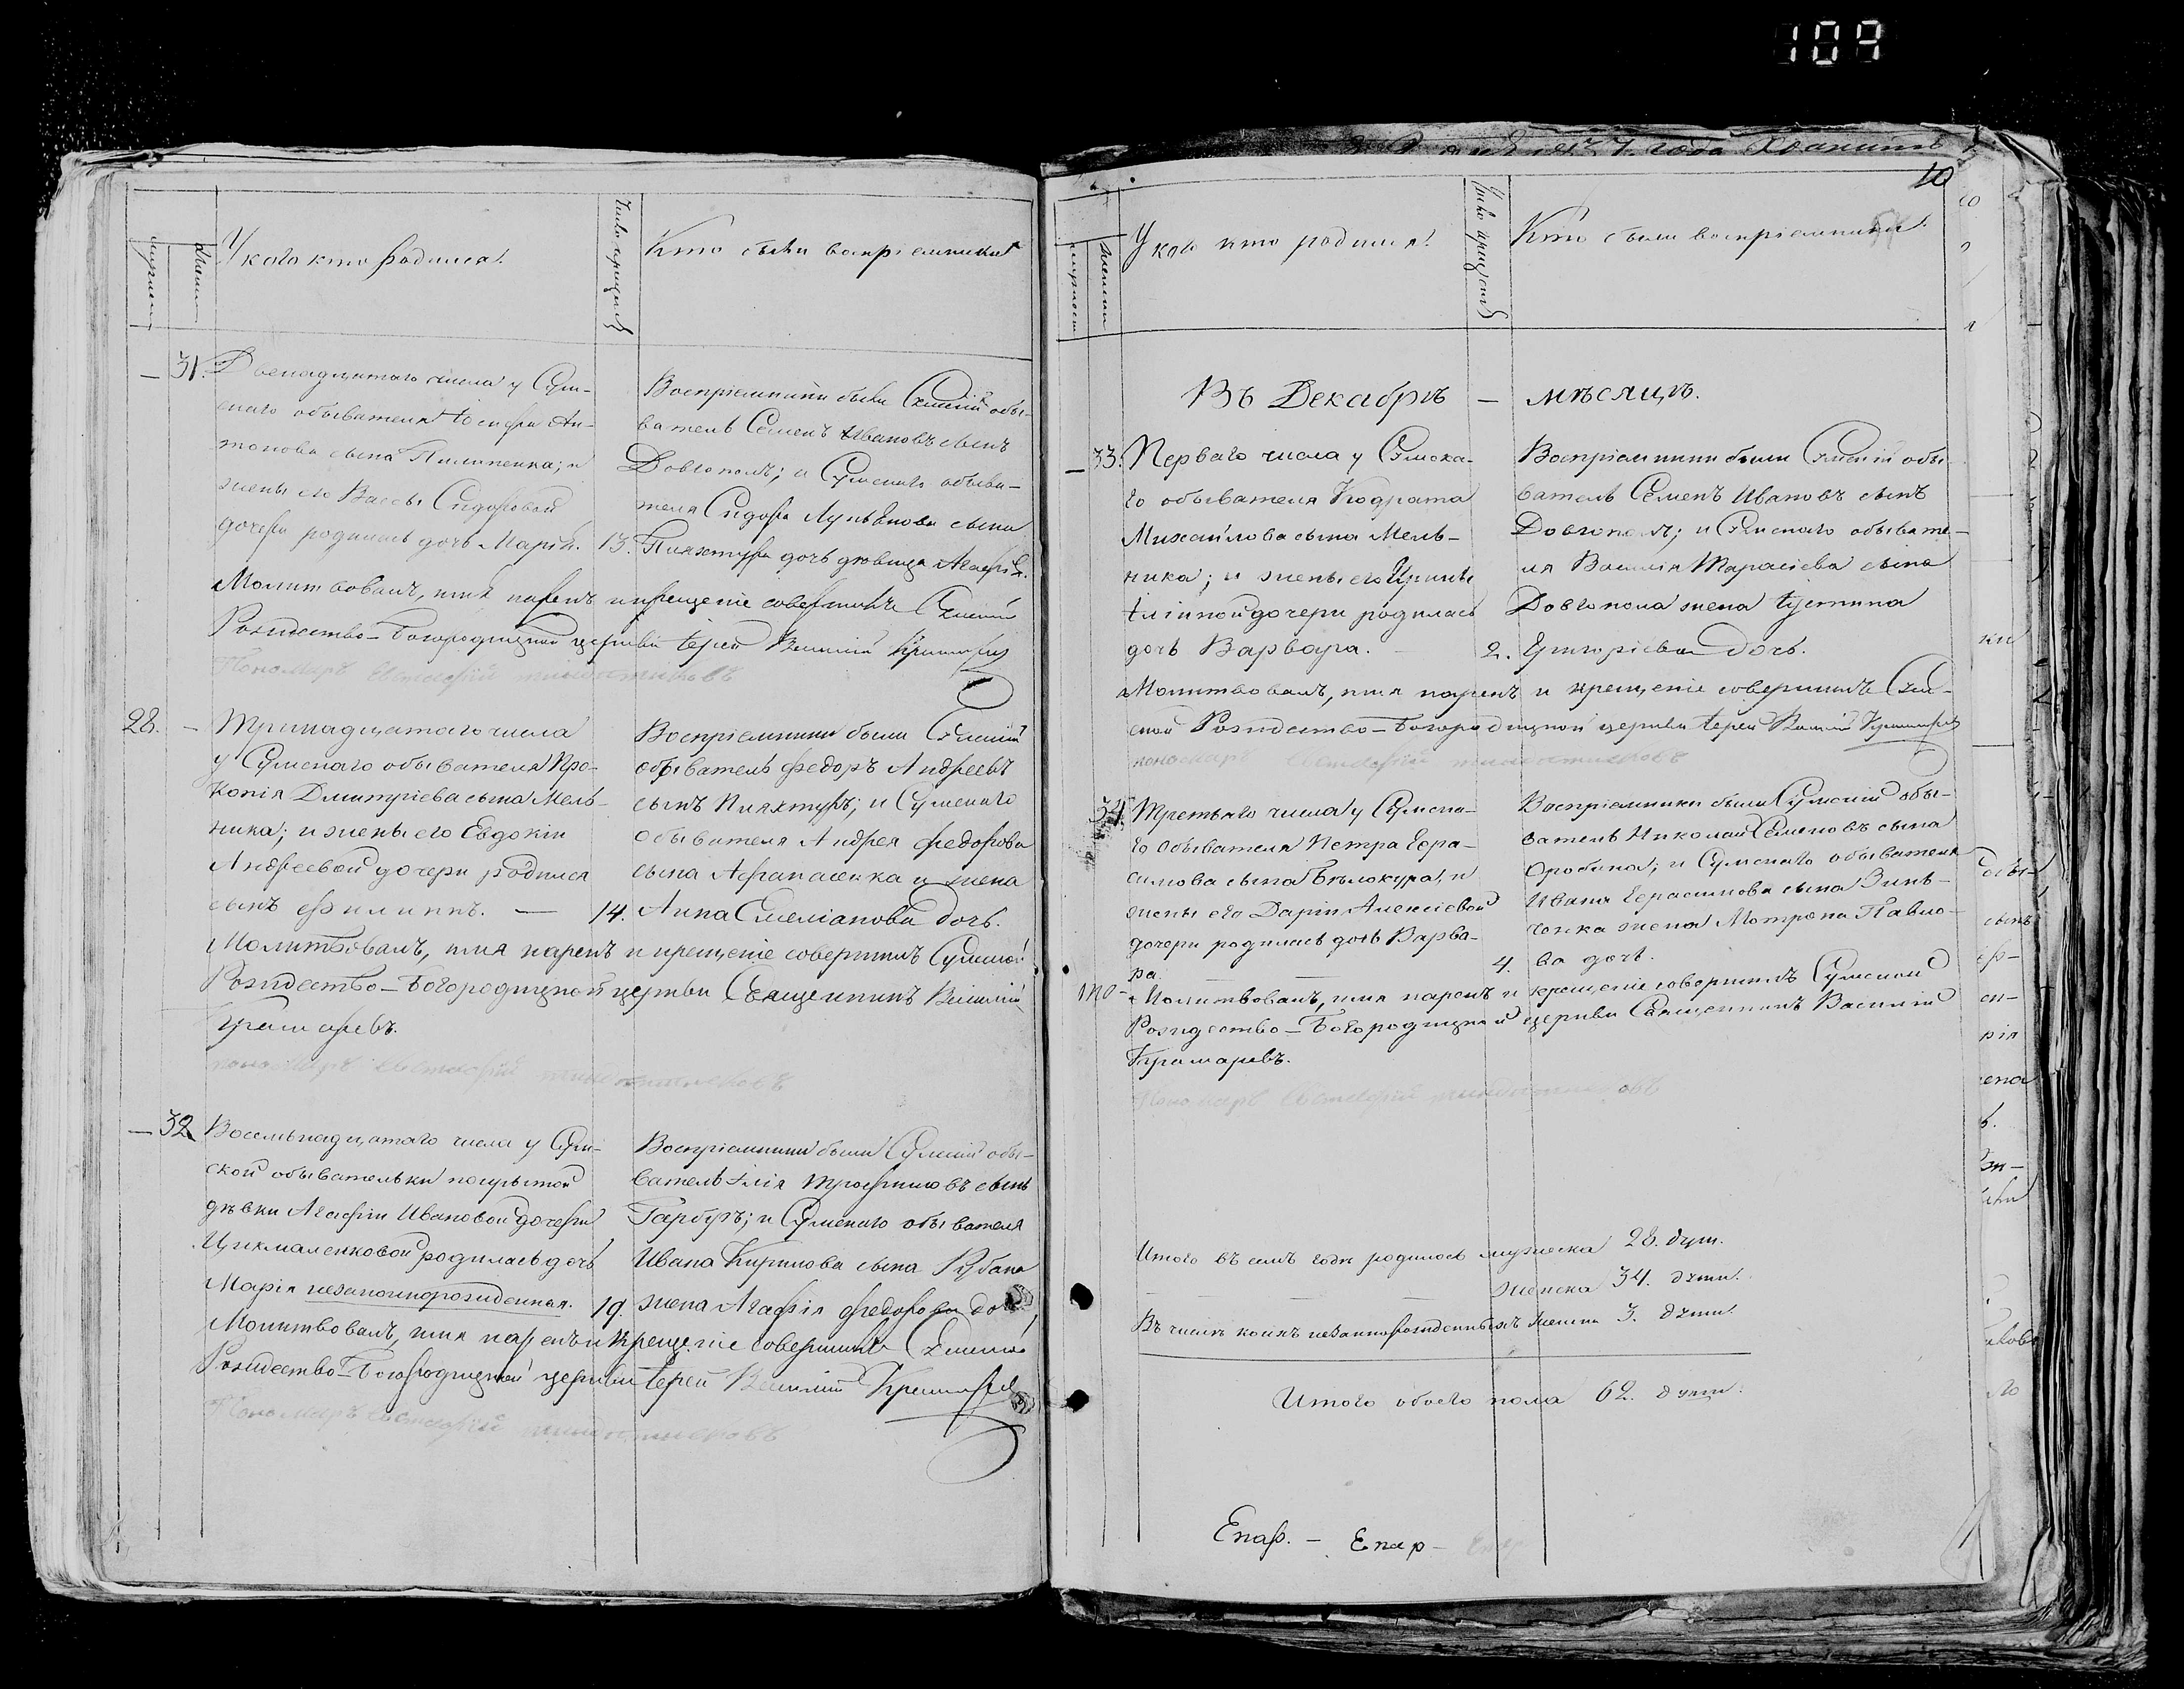 109
года
10
Число крещенія
У кого кто родился.
Кто были воспріемники
31.
Двенадцатаго числа у Сум-
скаго обывателя Іосифа Ан-
тонова сына Пилипенка; и
жены его Вассы Сидоровой
дочери родилась дочь Марія. 13.
Воспріемники были Сумскій обы-
ватель Семенъ Ивановъ сынъ
Довгополъ; и Сумскаго обыва-
теля Сидора Лукьянова сына
дочь девица Агафія.
Молитвовалъ, имя нарекъ и крещеніе совершилъ Сумской
Рождество-Богородицкой церкви Іерей Василій Крамаревъ
Пономарь Евстафій
28. -
Тринадцатаго числа
у Сумскаго обывателя Про-
копія Димитріева сына Мель-
ника; и жены его Евдокіи
Андреевой дочери родился
сынъ Филиппъ. — 14.
Воспріемники были Сумскій
обыватель Федоръ Андреевъ
сынъ и Сумскаго
обывателя Андрея Федорова
сына Афанасенка жена
Анна Емеліанова дочь.
Молитвовалъ, имя нарекъ и крещеніе совершилъ Сумской
Рождество-Богородицкой церкви Священникъ Василій
Крамаревъ.
Пономарь Евстафій
- 32
Восемьнадцатаго числа у Сум-
ской обывательки покрытой
девки Агафіи Ивановой дочери
Цикмаленковой родилась дочь
Марія незаконнорожденная. 19.
Воспріемники были Сумскій обы-
ватель Илія Трофимовъ сынъ
Гарбузъ; и Сумскаго обывателя
Ивана Кирилова сына Рубана
жена Агафія Федорова дочь
Молитвовалъ, имя нарекъ и крещеніе совершилъ Сумской
Рождество-Богородицкой церкви Іерей Василій Крамаревъ
Пономарь Евстафій
Число крещенія
У кого кто родился.
Кто были воспріемники.
Въ Декабрѣ - мѣсяцѣ.
- 33.
Перваго числа у Сумска-
го обывателя Кодрата
Михайлова сына Мель-
ника; и жены его Ирины
Иліиной дочери родилась
дочь Варвара. - 2.
Воспріемники были Сумскій обы-
ватель Семенъ Ивановъ сынъ
Довгополъ; и Сумскаго обывате-
ля Василія Тарасіева сына
Довгопола жена Іустина
Григоріева дочь.
Молитвовалъ, имя нарекъ и крещеніе совершилъ Сум-
ской Рождество-Богородицкой церкви Іерей Василій Крамаревъ
Пономарь Евстафій
34.
Третьяго числа у Сумска-
го обывателя Петра Гера-
симова сына Бѣлокура, и
жены его Даріи Алексіевой
дочери родилась дочь Варва-
ра. 4.
Воспріемники были Сумскій обы-
ватель Николай Семеновъ сынъ
и Сумскаго обывателя
Ивана Герасимова сына Зинь-
ченка жена Мотрона Павло-
ва дочь.
Молитвовалъ, имя нарекъ и крещеніе совершилъ Сумской
Рождество-Богородицкой церкви Священникъ Василій
Крамаревъ.
Пономарь Евстафій
Итого въ семъ годѣ родилось мужеска 28. душ.
женска 34. душ.
Въ числѣ коихъ незаконнорожденныхъ женска 3. душ.
Итого обоего пола 62. душ.
Епар. - Епар -